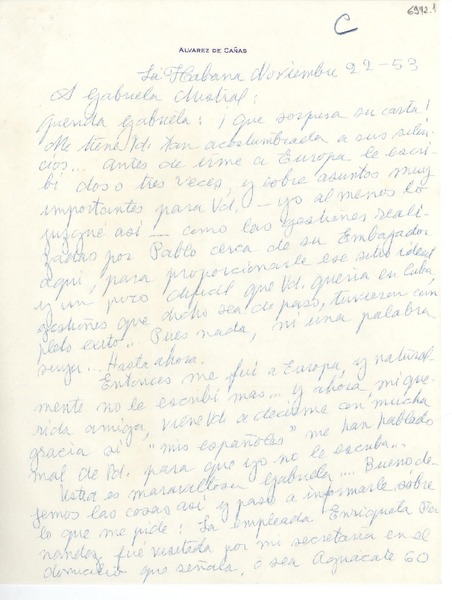 6992.1
C
ALVAREZ DE CAÑAS
La Habana Noviembre 22-53
A Gabriela Mistral:
Querida Gabriela: ¡Que sorpresa su carta!
Me tiene Vd. tan acostumbrada a sus silen-
cios... Antes de irme a Europa le escri-
bí dos o tres veces, y sobre asuntos muy
importantes para Vd. — yo al menos lo
juzgué así — como las gestiones reali-
zadas por Pablo cerca de su Embajador
aquí, para proporcionarle ese sitio ideal
y un poco dificil que Vd. queria en Cuba,
gestiones que dicho sea de paso, tuvieron com
pleto exito... Pues nada, ni una palabra
suya... Hasta ahora.
Entonces me fuí a Europa, y natural
mente no le escribí mas... y ahora, mi que-
rida amiga, viene Vd. a decirme con mucha
gracia si "mis españoles" me han hablado
mal de Vd. para que yo no le escriba...
Usted es maravillosa Gabriela.... Bueno de-
jemos las cosas así y paso a informarle sobre
lo que me pide: La empleada Enriqueta Fer
nandez, fue visitada por mi secretaria en el
domicilio que señala, o sea Aguacate 60